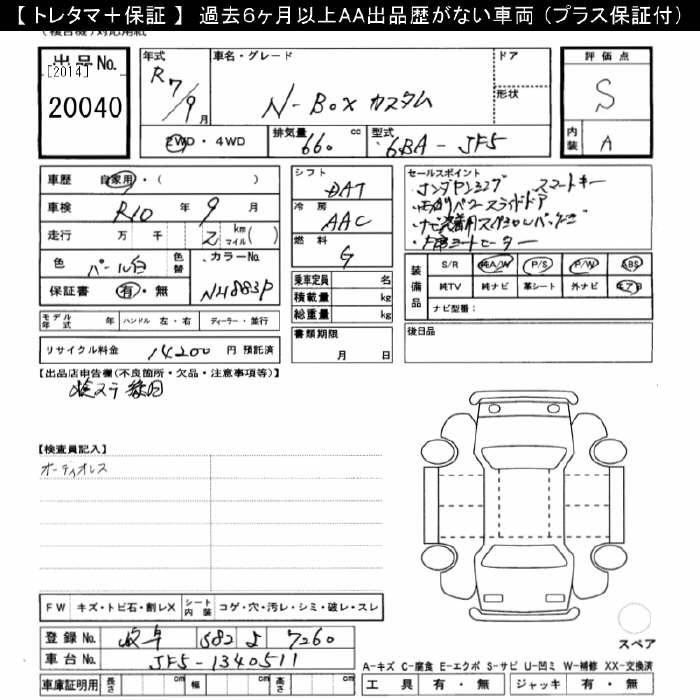 【 トレタマ＋保証 】 過去６ヶ月以上ＡＡ出品歴がない車両（プラス保証付）
出品No.
[2014]
20040
年式 R7/9 月
車名・グレード N-Box カスタム
ドア
形状
評価点 S
内装 A
2WD・4WD
排気量 660 cc
型式 6BA-JF5
車歴 自家用・( )
車検 R10 年 9 月
走行 万 千 2 km マイル ( )
色 パール白 色替 カラーNo. NH883P
保証書 有・無
シフト DAT
冷房 AAC
燃料 G
乗車定員 名
積載量 kg
総重量 kg
書類期限 月 日
セールスポイント
・ホンダセンシング スマートキー
・両側パワースライドドア
・ナビ装着用スペシャルパッケージ
・前席シートヒーター
装備品 S/R 純A/W P/S P/W ABS
純TV 純ナビ 革シート 外ナビ エアB
ナビ型番：
モデル年式 年 ハンドル 左・右 ディーラー・並行
リサイクル料金 14200 円 預託済
後日品
【出品店申告欄(不良箇所・欠品・注意事項等)】
検ステ
【検査員記入】
オーディオレス
FW キズ・トビ石・割レX シート内装 コゲ・穴・汚レ・シミ・破レ・スレ
登録No. 岐阜 582 よ 7260
車台No. JF5-1340511
車庫証明用 長さ cm 幅 cm 高さ cm
スペア
A-キズ C-腐食 E-エクボ S-サビ U-凹ミ W-補修 XX-交換済
工具 有・無 ジャッキ 有・無